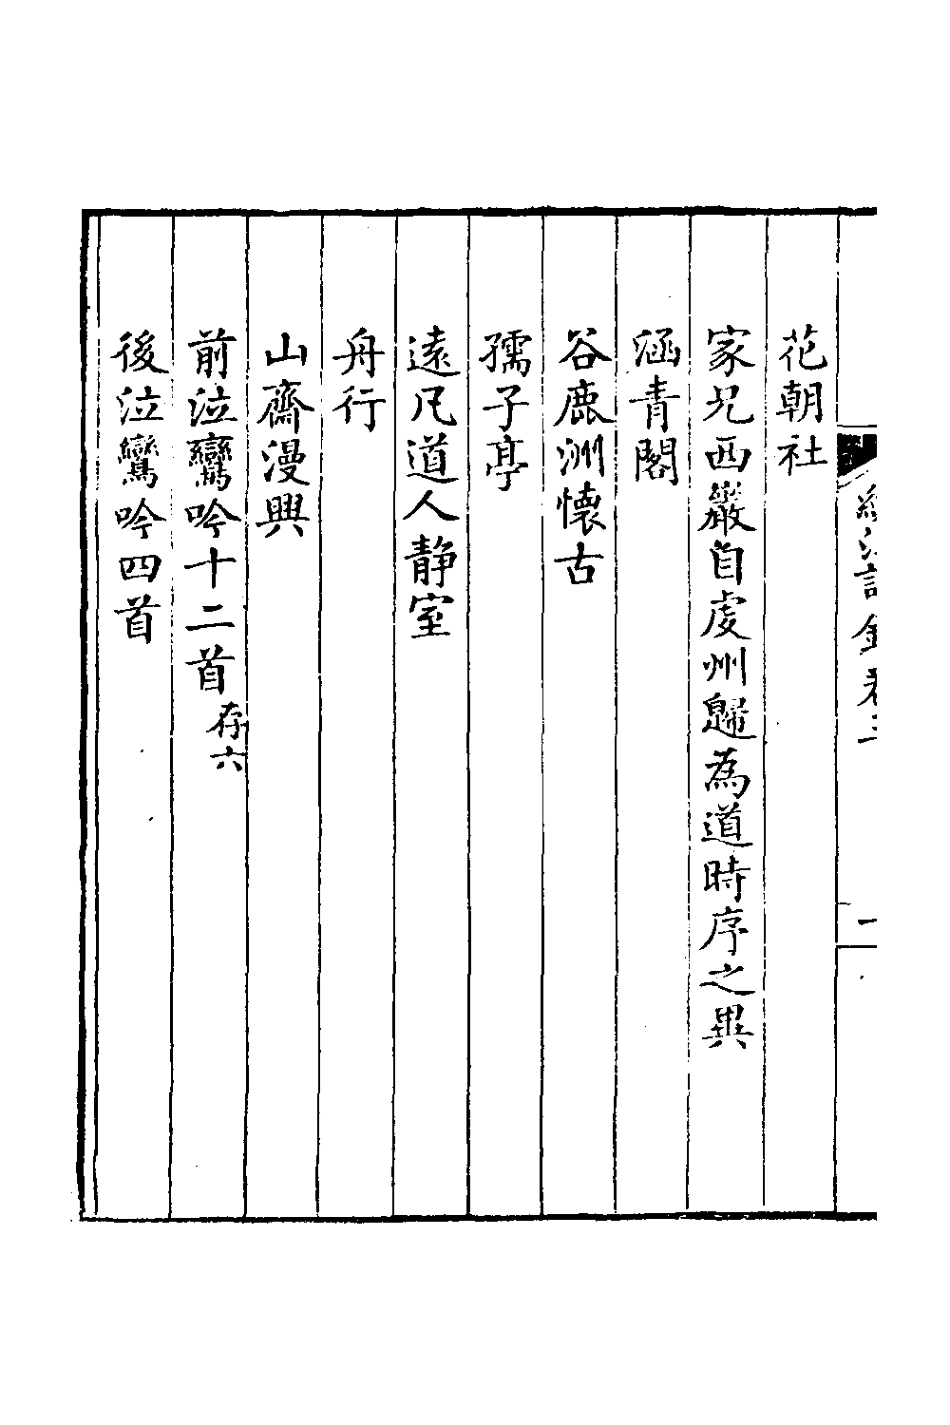 花朝社
家兄西巖自虔州歸為道時序之異
涵青閣
谷鹿洲懷古
孺子亭
遠凡道人靜室
舟行
山齋漫興
前泣鸞吟十二首存六
後泣鸞吟四首